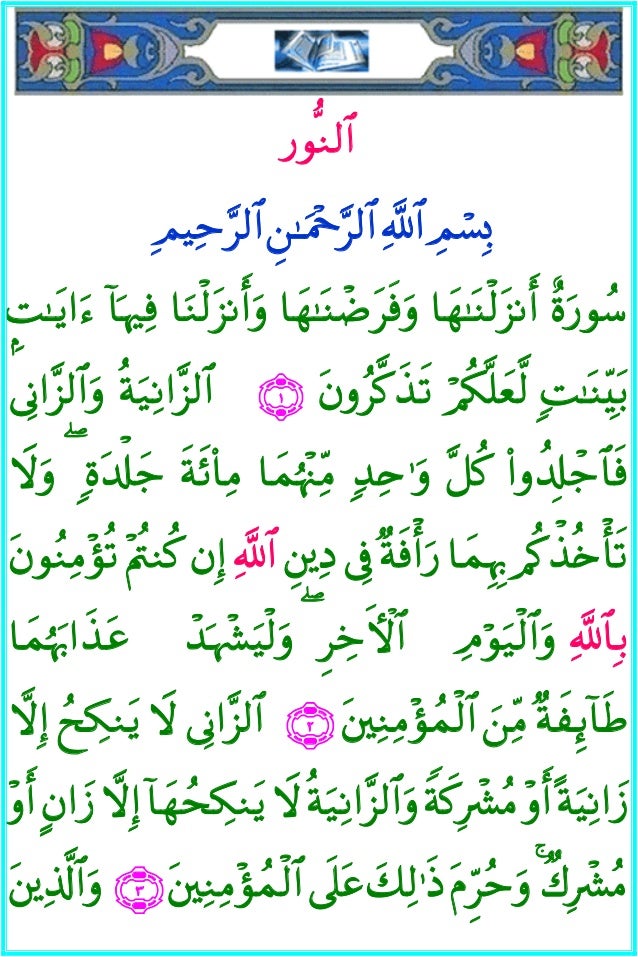 ٱلنُّور
بِسْمِ ٱللَّهِ ٱلرَّحْمَٰنِ ٱلرَّحِيمِ
سُورَةٌ أَنزَلْنَٰهَا وَفَرَضْنَٰهَا وَأَنزَلْنَا فِيهَآ ءَايَٰتٍۭ
بَيِّنَٰتٍ لَّعَلَّكُمْ تَذَكَّرُونَ ١ ٱلزَّانِيَةُ وَٱلزَّانِى
فَٱجْلِدُوا۟ كُلَّ وَٰحِدٍ مِّنْهُمَا مِا۟ئَةَ جَلْدَةٍ ۖ وَلَا
تَأْخُذْكُم بِهِمَا رَأْفَةٌ فِى دِينِ ٱللَّهِ إِن كُنتُمْ تُؤْمِنُونَ
بِٱللَّهِ وَٱلْيَوْمِ ٱلْءَاخِرِ ۖ وَلْيَشْهَدْ عَذَابَهُمَا
طَآئِفَةٌ مِّنَ ٱلْمُؤْمِنِينَ ٢ ٱلزَّانِى لَا يَنكِحُ إِلَّا
زَانِيَةً أَوْ مُشْرِكَةً وَٱلزَّانِيَةُ لَا يَنكِحُهَآ إِلَّا زَانٍ أَوْ
مُشْرِكٌ ۚ وَحُرِّمَ ذَٰلِكَ عَلَى ٱلْمُؤْمِنِينَ ٣ وَٱلَّذِينَ